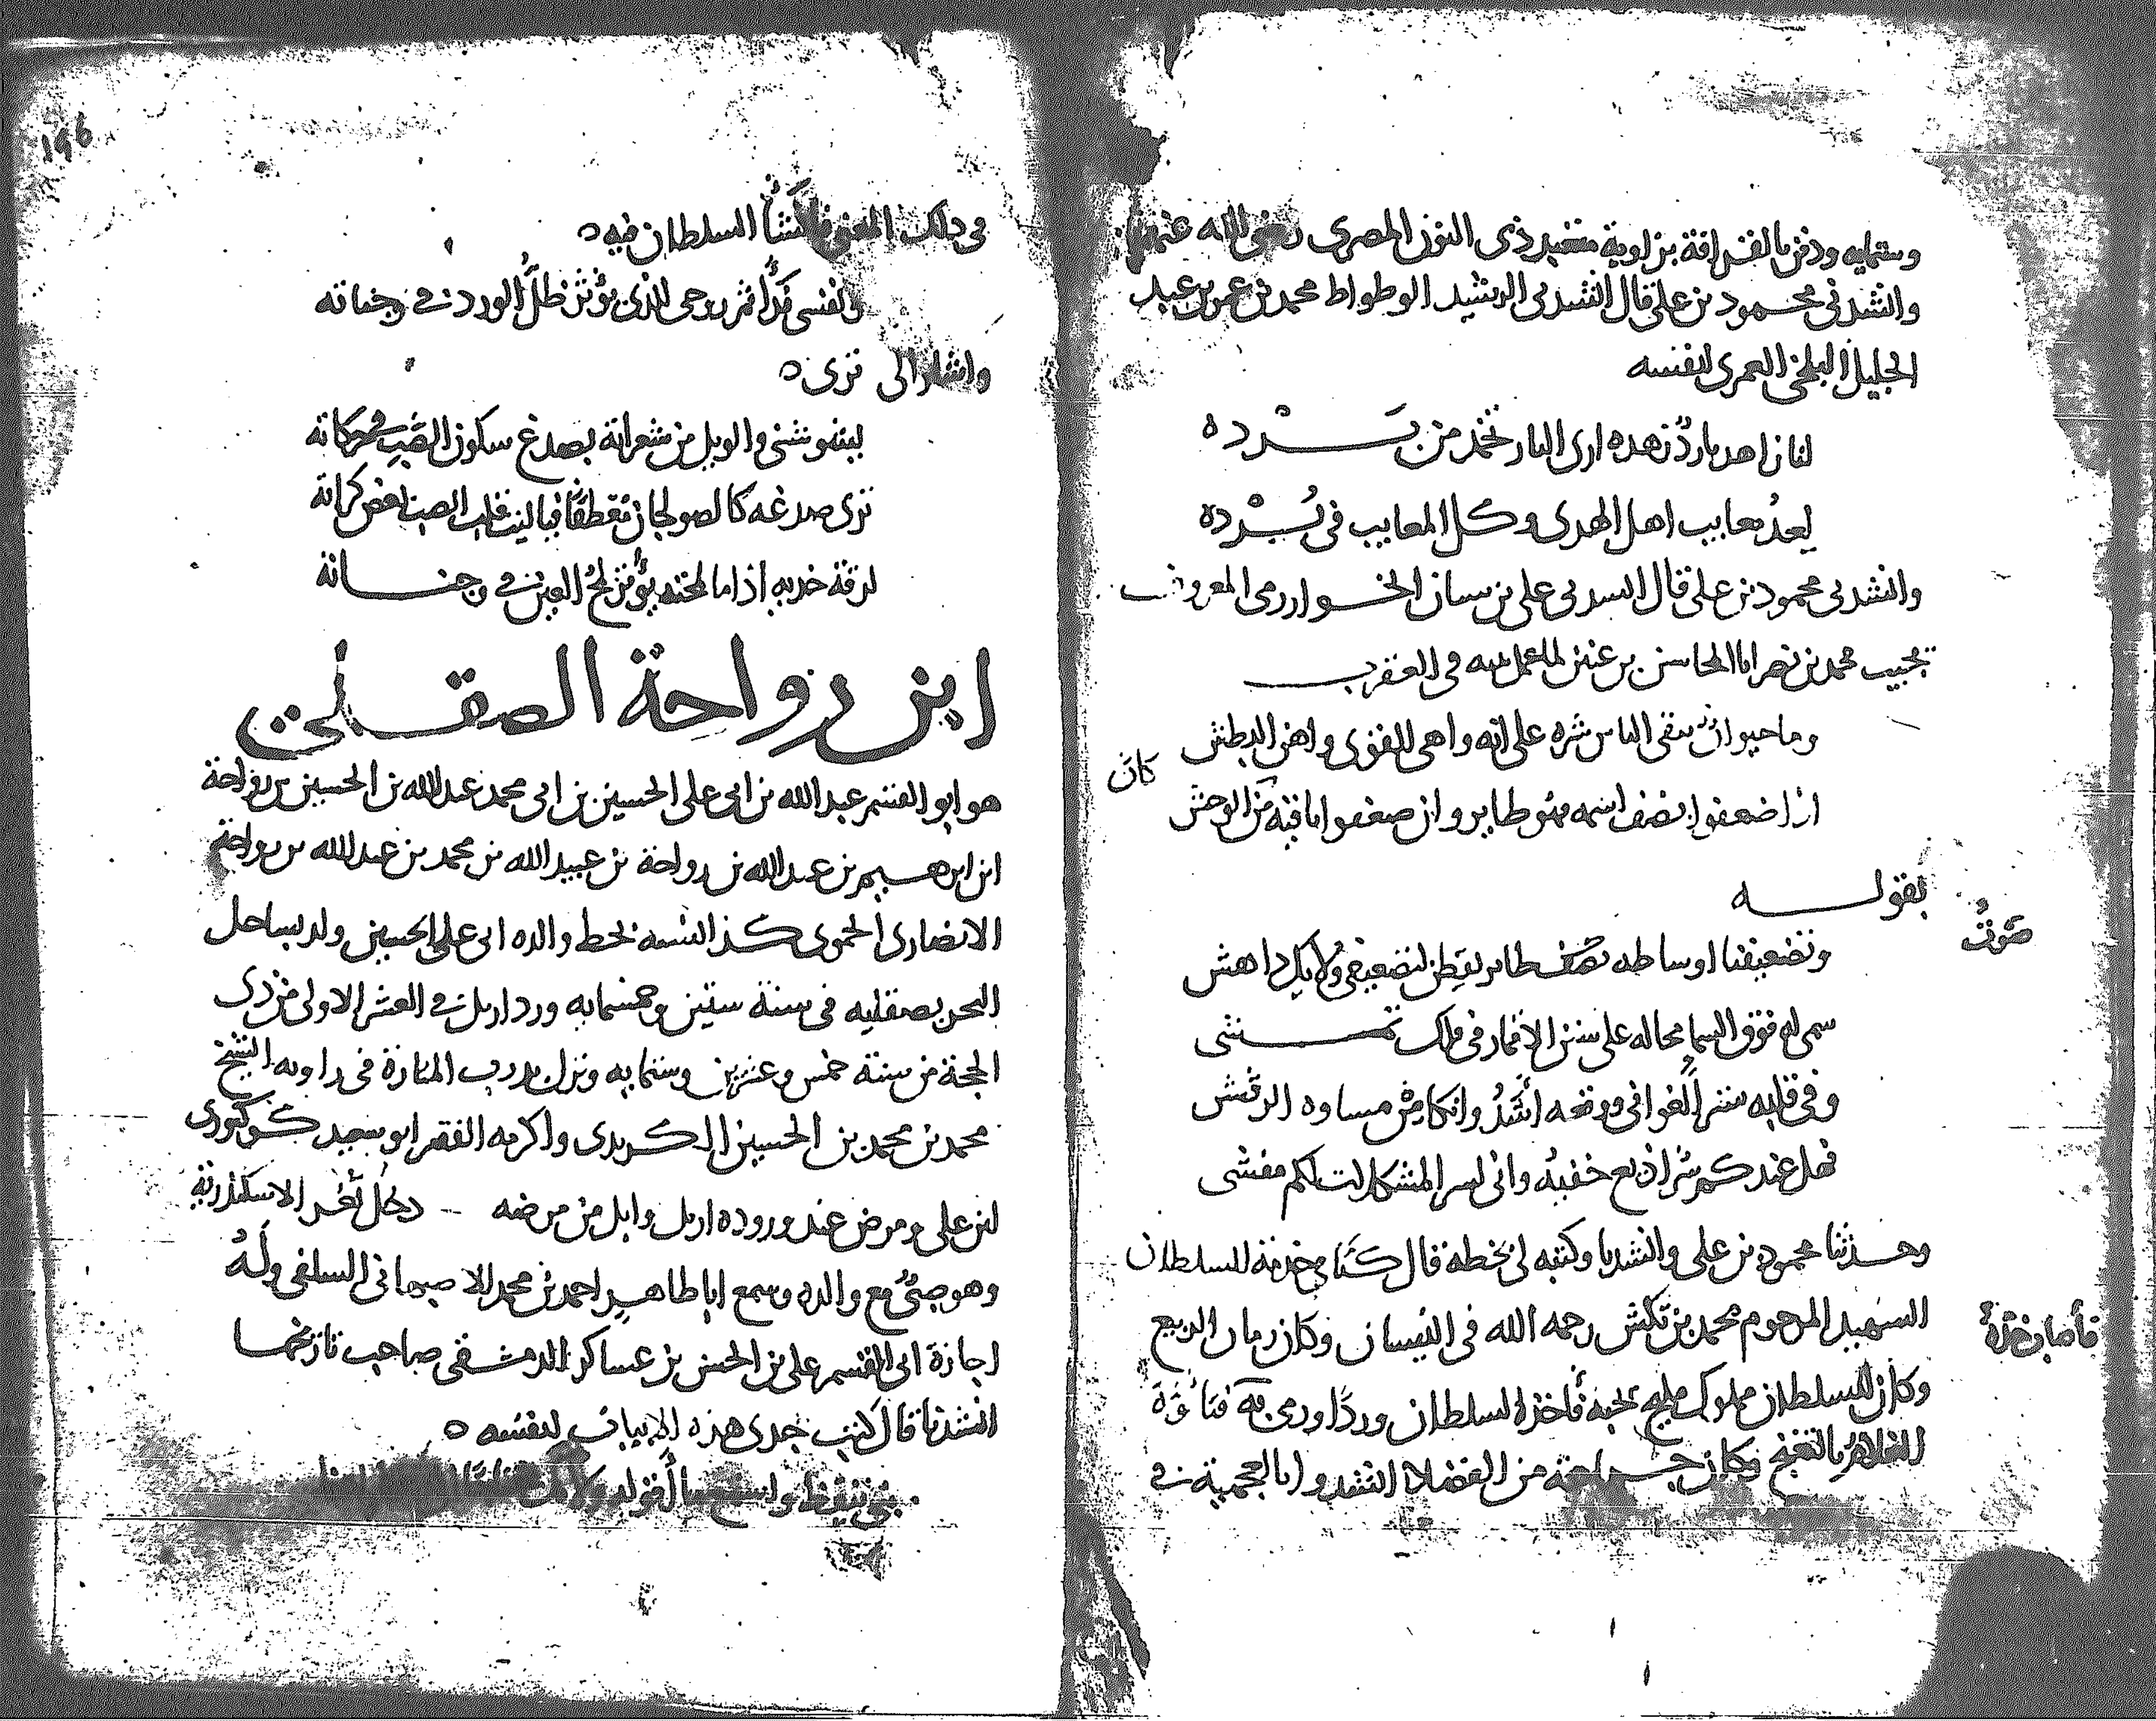 وستمايه ودفن بالقرافة بزاوية سعيد ذى النون المصرى رضى الله عنهما
وانشدنى محمود بن على قال انشدنى الرشيد الوطواط محمد بن عمر بن عبد
الجليل البلخى العمرى لنفسه
لنا زاهد بارد زهده ارى النار تخمد من برده
يعد معايب اهل الهدى وكل المعايب فى برده
وانشدنى محمود بن على قال انشدنى على بن الخوارزمى المعروف
يجيب محمد بن نصر ابا المحاسن بن عنين لما عمل لله فى العقرب
وما حيوان يتقى الناس شره على انه واهى القوى واهن البطش
اذا ضعفوا نصف اسمه فهو طاير وان ضعفوا باقيه من الوحش
كان
بقوله
وتضعيفنا اوساطه نصف طاير
صوت
سمى له فوق السما محاله على سنن الاقمار فى فلك تمشى
وفى قلبه
فهل عندكم سر اذيع خفيه وانى لسر المشكلات لكم مفشى
وحدثنا محمود بن على وانشدنا وكتبه لى بخطه قال كنا فى خدمة السلطان
الشهيد المرحوم محمد بن تكش رحمه الله فى النيسان وكان زمان الربيع
وكان للسلطان مملوك مليح يحبه فأخذ السلطان وردا ورمى به
فأصاب خده
الغلام وكان جماعة من الفضلا انشدوا بالعجمية فى
196
فى ذلك المعنى فانشأ السلطان فيه
بنفسى روحى الذى يؤثر ظل الورد فى وجناته
واشار الى نزى
بصدغ سكون الصب فى حركاته
نزى صدغه كالصولجان تعطفا فيا ليت قلب الصب بعض كراته
لرقة خديه اذا ما لمحته يؤثر لمح العين فى وجناته
ابن رواحة الصقلى
هو ابو القسم عبد الله بن ابى على الحسين بن ابى محمد عبد الله بن الحسين بن رواحة
ابن ابرهيم بن عبد الله بن رواحة بن عبيد الله بن محمد بن عبد الله بن رواحة
الانصارى الحموى كذا نسبه بخط والده ابى على الحسين ولد بساحل
البحر بصقليه فى سنة ستين وخمسمايه ورد اربل فى العشر الاولى من ذى
الحجة من سنة خمس وعشرين وستمايه ونزل بدرب المنارة فى زاويه الشيخ
محمد بن محمد بن الحسين الكريدى واكرمه الفقير ابو سعيد كوكبورى
بن على ومرض عند وروده اربل وابل من مرضه دخل ثغر الاسكندرية
وهو صبى مع والده وسمع ابا طاهر احمد بن محمد الاصبهانى السلفى وله
اجازة ابى القسم على بن الحسن بن عساكر الدمشقى صاحب تاريخها
انشدنا قال كتب جدى هذه الابيات لنفسه